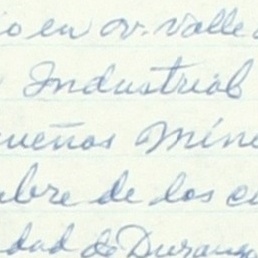 io en av. valle d
Industrial
queños Mine
mbre de los c
idad de Durango